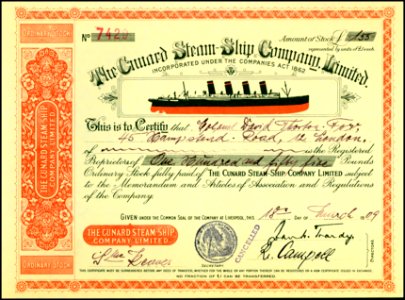 ORDINARY STOCK
No 7429
Amount of Stock £ 155
represented by units of £1 each
The Cunard Steam-Ship Company, Limited.
INCORPORATED UNDER THE COMPANIES ACT 1862
This is to Certify that Colonel David
45 Hampstead Road, London
is the Registered
Proprietor of One Hundred and fifty five Pounds
Ordinary Stock fully paid of THE CUNARD STEAM SHIP COMPANY LIMITED subject
to the Memorandum and Articles of Association and Regulations
of the Company.
GIVEN UNDER THE COMMON SEAL OF THE COMPANY AT LIVERPOOL, THIS 18th March 09
THE CUNARD STEAM SHIP
COMPANY LIMITED
CANCELLED
DIRECTORS
SECRETARY
THE CUNARD STEAM SHIP
COMPANY LIMITED
ORDINARY STOCK
THIS CERTIFICATE MUST BE SURRENDERED BEFORE ANY DEED OF TRANSFER, WHETHER FOR THE WHOLE OR ANY PORTION THEREOF CAN BE REGISTERED OR A NEW CERTIFICATE ISSUED IN EXCHANGE.
NO FRACTION OF £1 CAN BE TRANSFERRED.